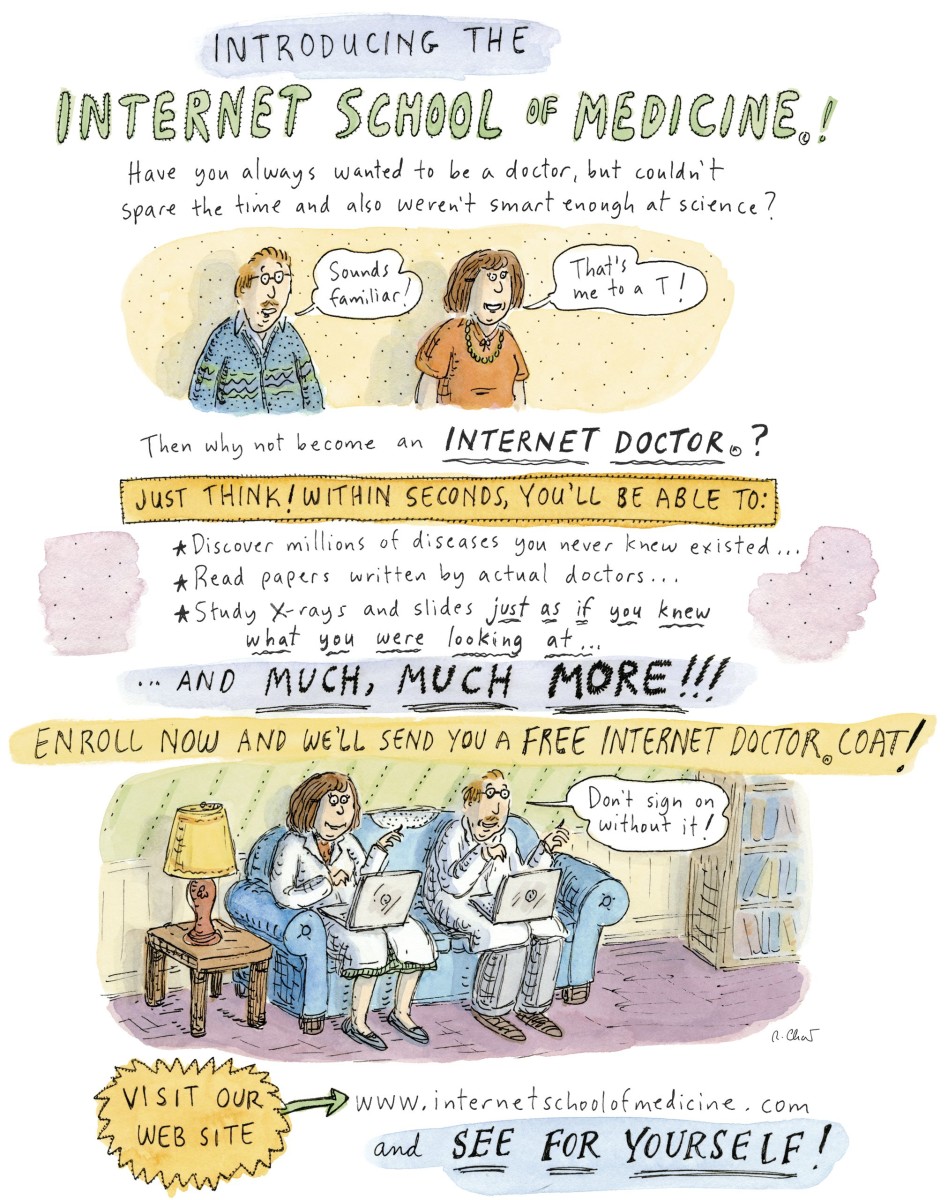 INTRODUCING THE
INTERNET SCHOOL OF MEDICINE®!
Have you always wanted to be a doctor, but couldn't
spare the time and also weren't smart enough at science?
Sounds
familiar!
That's
me to a T!
Then why not become an INTERNET DOCTOR®?
JUST THINK! WITHIN SECONDS, YOU'LL BE ABLE TO:
★Discover millions of diseases you never knew existed...
★Read papers written by actual doctors...
★Study X-rays and slides just as if you knew
what you were looking at...
... AND MUCH, MUCH MORE!!!
ENROLL NOW AND WE'LL SEND YOU A FREE INTERNET DOCTOR® COAT!
Don't sign on
without it!
R. Chast
VISIT OUR
WEB SITE
www.internetschoolofmedicine.com
and SEE FOR YOURSELF!